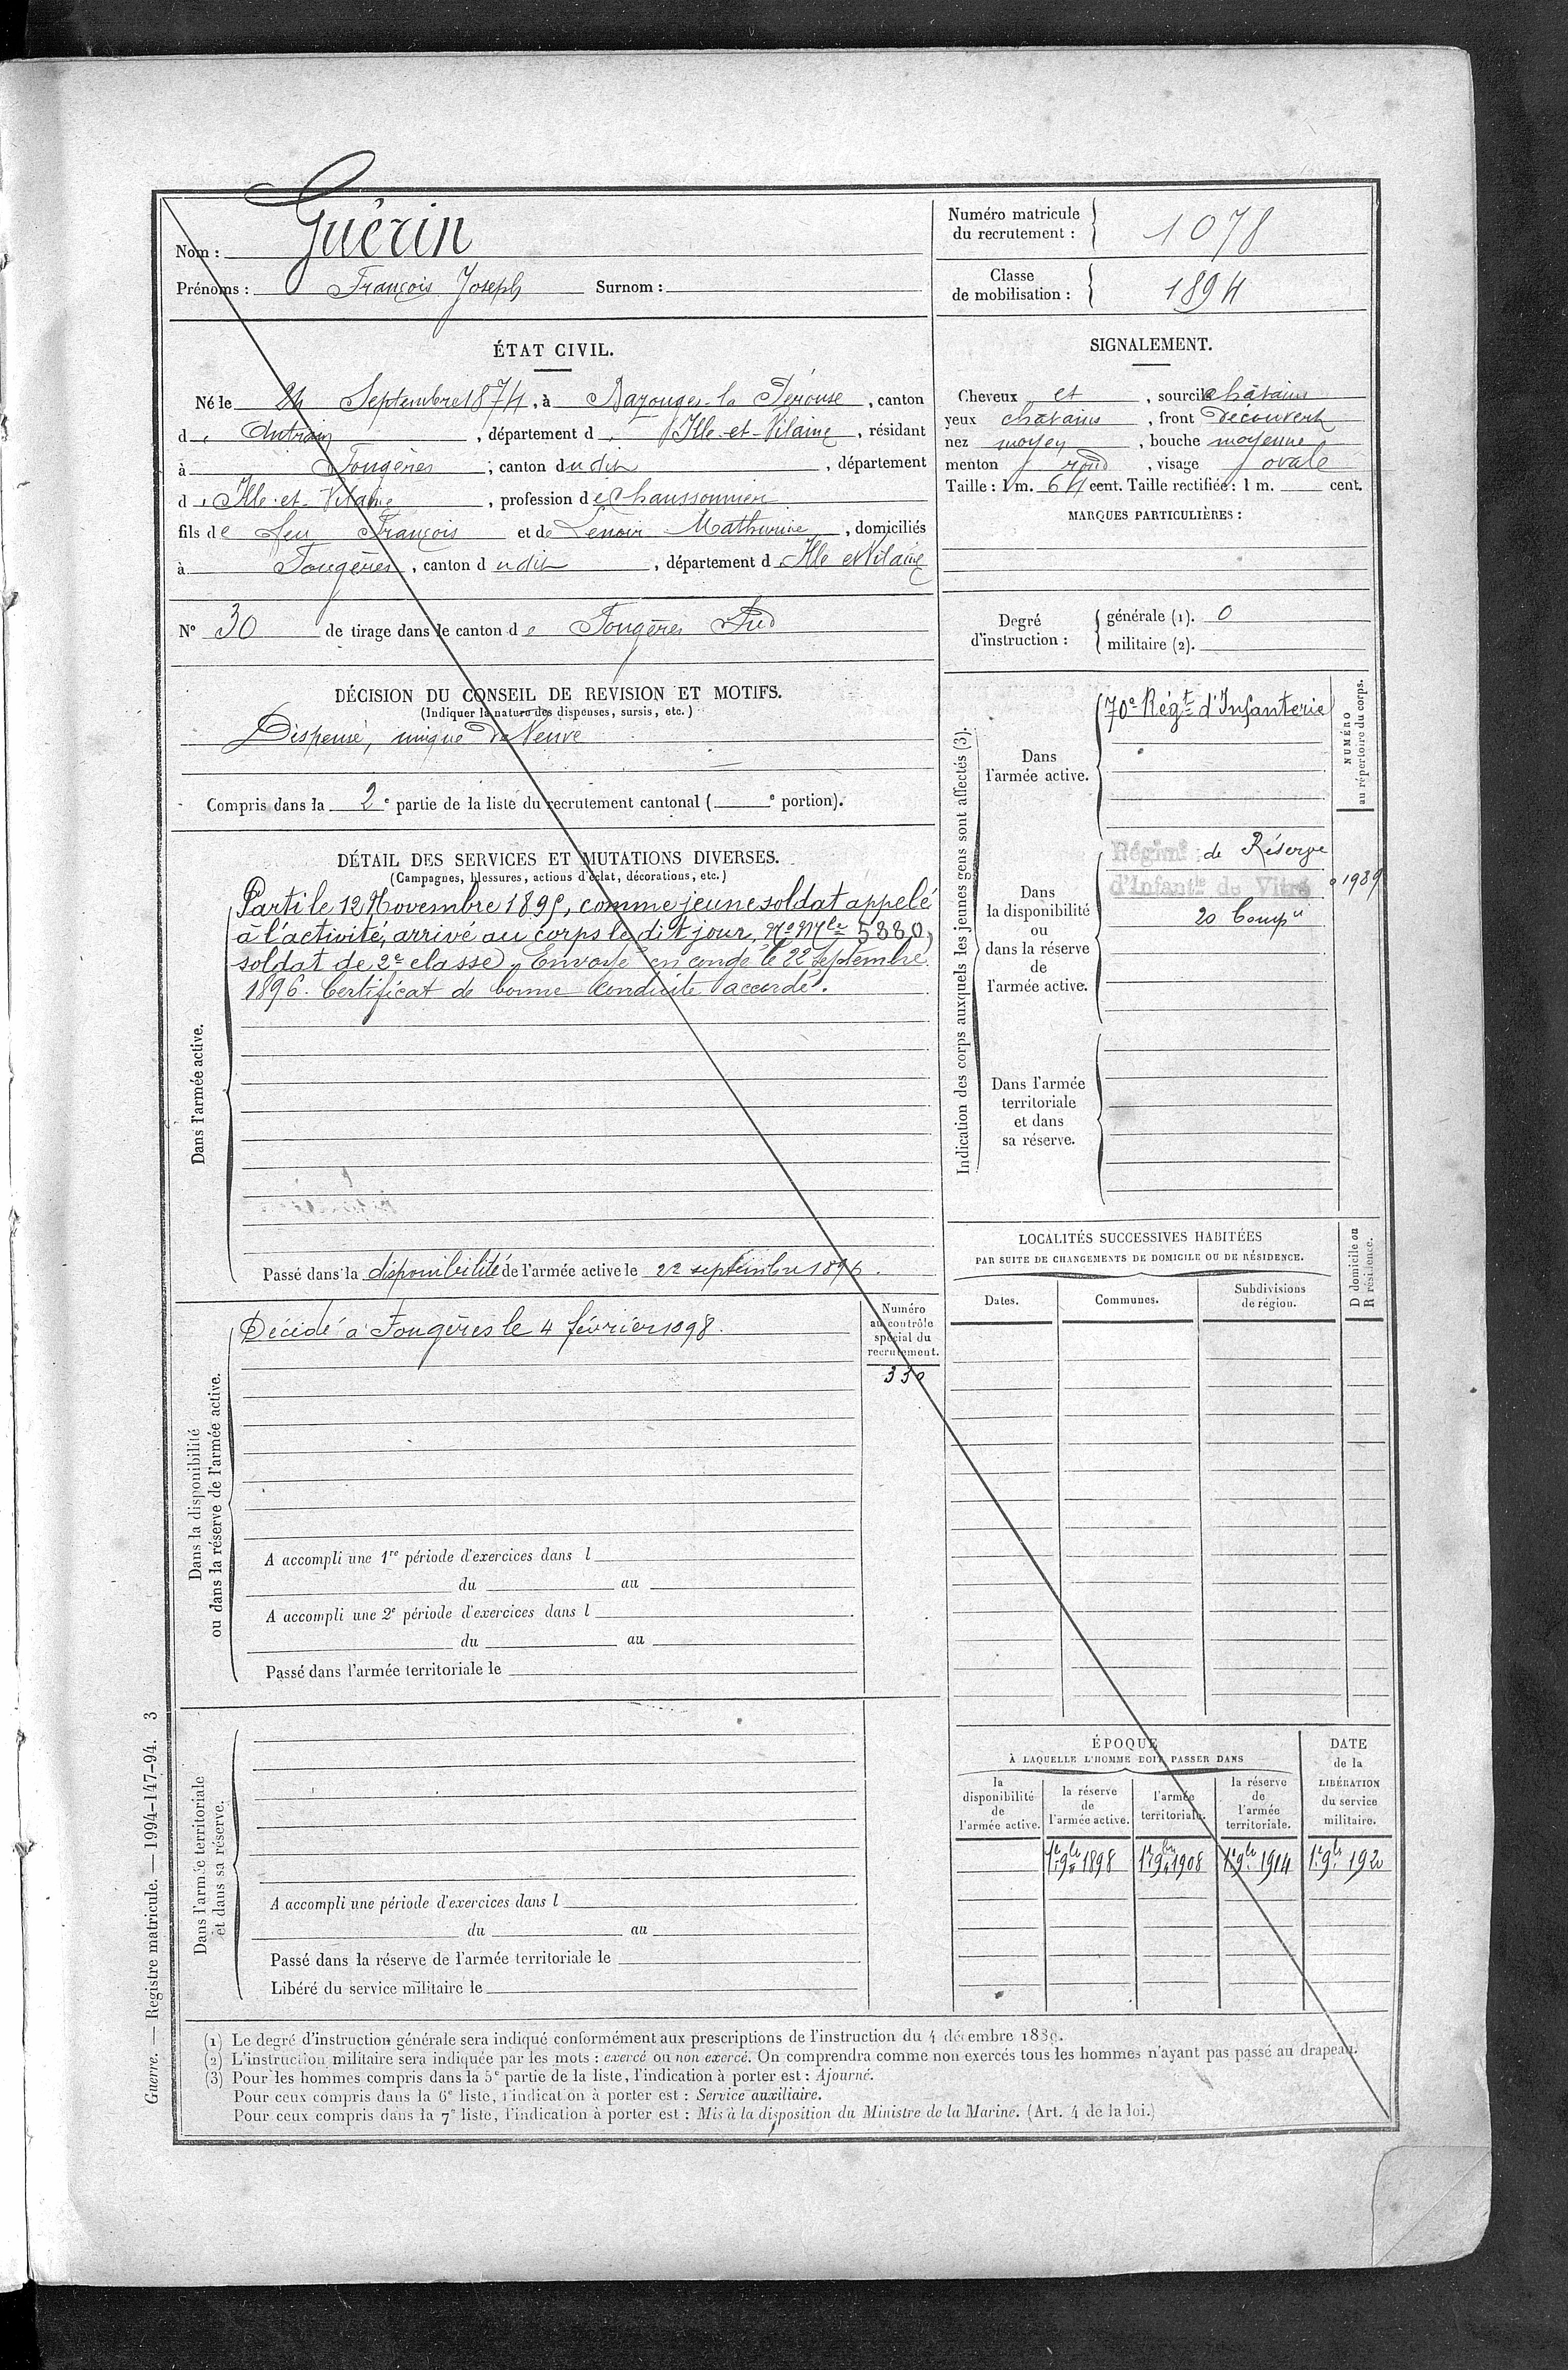 Nom : Guérin
Prénoms : François Joseph Surnom :
Numéro matricule du recrutement : 1078
Classe de mobilisation : 1894
ÉTAT CIVIL.
Né le 24 Septembre 1874, à Bazouges-la Pérouse, canton
d' Antrain, département d' Ille-et-Vilaine, résidant
à Fougères, canton dudit, département
d' Ille-et-Vilaine, profession de Chaussonnier
fils de feu François et de Lenoir Mathurine, domiciliés
à Fougères, canton dudit, département d Ille et Vilaine
N° 30 de tirage dans le canton de Fougères Sud
SIGNALEMENT.
Cheveux et, sourcils châtains
yeux châtains, front découvert
nez moyen, bouche moyenne
menton rond, visage ovale
Taille : 1 m. 64 cent. Taille rectifiée : 1 m. cent.
MARQUES PARTICULIÈRES :
Degré d'instruction :
générale (1). 0
militaire (2).
DÉCISION DU CONSEIL DE REVISION ET MOTIFS.
(Indiquer la nature des dispenses, sursis, etc.)
Dispensé, unique de Veuve
Compris dans la 2e partie de la liste du recrutement cantonal ( e portion).
DÉTAIL DES SERVICES ET MUTATIONS DIVERSES.
(Campagnes, blessures, actions d'éclat, décorations, etc.)
Dans l'armée active.
Parti le 12 Novembre 1895, comme jeune soldat appelé
à l'activité, arrivé au corps le dit jour, No Mle 5880,
soldat de 2e classe. Envoyé en congé le 22 septembre
1896. Certificat de bonne conduite accordé.
Passé dans la disponibilité de l'armée active le 22 septembre 1896.
Indication des corps auxquels les jeunes gens sont affectés (3).
NUMÉRO au répertoire du corps.
Dans l'armée active.
70e Régt d'Infanterie
Dans la disponibilité ou dans la réserve de l'armée active.
Régimt de Réserve
d'Infantie de Vitré
20 Compie
1989
Dans l'armée territoriale et dans sa réserve.
LOCALITÉS SUCCESSIVES HABITÉES
PAR SUITE DE CHANGEMENTS DE DOMICILE OU DE RÉSIDENCE.
D domicile ou R résidence.
Dates.
Communes.
Subdivisions de région.
Dans la disponibilité ou dans la réserve de l'armée active.
Décédé à Fougères le 4 février 1898.
Numéro au contrôle spécial du recrutement.
330
A accompli une 1re période d'exercices dans l
du au
A accompli une 2e période d'exercices dans l
du au
Passé dans l'armée territoriale le
Dans l'armée territoriale et dans sa réserve.
A accompli une période d'exercices dans l
du au
Passé dans la réserve de l'armée territoriale le
Libéré du service militaire le
ÉPOQUE
À LAQUELLE L'HOMME DOIT PASSER DANS
la disponibilité de l'armée active.
la réserve de l'armée active.
l'armée territoriale.
la réserve de l'armée territoriale.
DATE de la LIBÉRATION du service militaire.
1er 9bre 1898
1er 9bre 1908
1er 9bre 1914
1er 9bre 1920
(1) Le degré d'instruction générale sera indiqué conformément aux prescriptions de l'instruction du 4 décembre 1889.
(2) L'instruction militaire sera indiquée par les mots : exercé ou non exercé. On comprendra comme non exercés tous les hommes n'ayant pas passé au drapeau.
(3) Pour les hommes compris dans la 5e partie de la liste, l'indication à porter est : Ajourné.
Pour ceux compris dans la 6e liste, l'indication à porter est : Service auxiliaire.
Pour ceux compris dans la 7e liste, l'indication à porter est : Mis à la disposition du Ministre de la Marine. (Art. 4 de la loi.)
Guerre. — Registre matricule. — 1994-147-94. 3